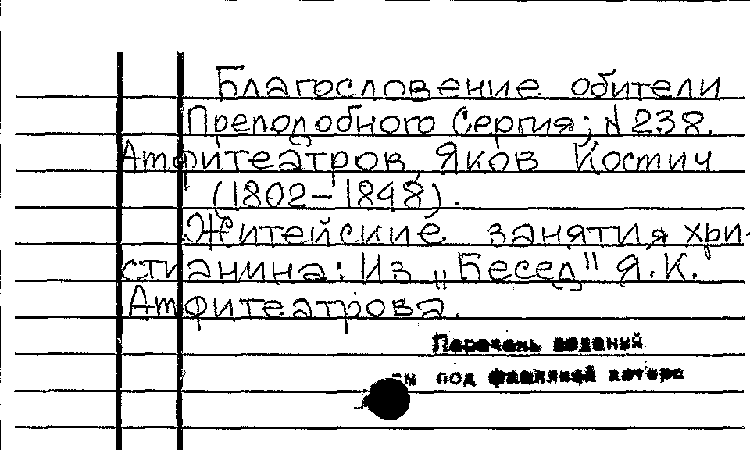 Благословение обители
Преподобного Сергия; № 238.
Амфитеатров, Яков Костич
(1802-1848).
Житейские занятия хри-
стианина: Из „Бесед" Я.К.
Амфитеатрова.
Перечень изданий
см под фамилией автора